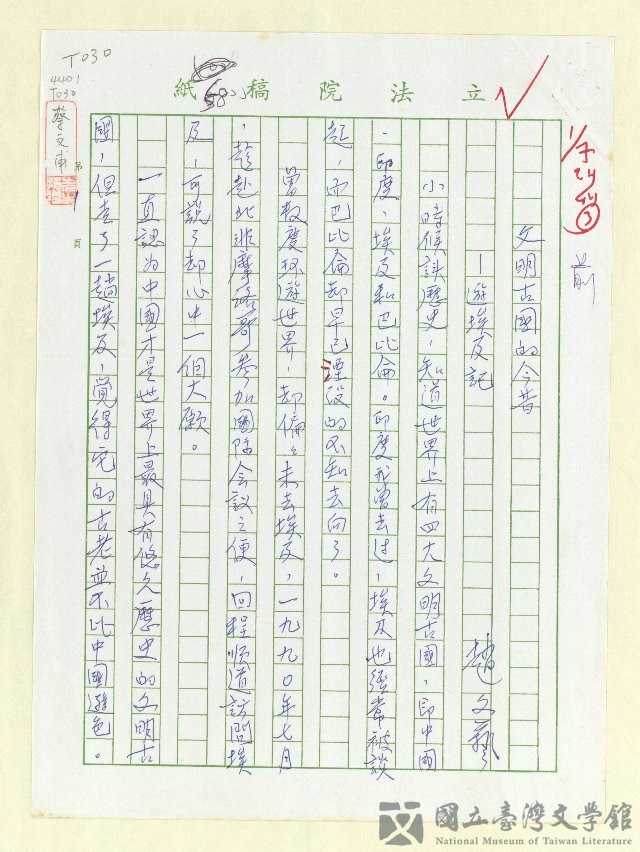 T030
4401
T030
蔡文甫
立法院稿紙
680
前
文明古國的今昔
—遊埃及記
趙文藝
小時候談歷史,知道世界上有四大文明古國,即中國
、印度、埃及和巴比倫。印度我曾去过,埃及也經常被談
起,而巴比倫却早已湮没的不知去向了。
曾数度环遊世界,却偏偏未去埃及,一九九〇年七月
,趁赴北非摩洛哥参加國际会议之便,回程順道訪問埃
及,可說了却心中一個大願。
一直認为中國才是世界上最具有悠久歷史的文明古
國,但走了一趟埃及,覺得它的古老並不比中國遜色。
第1頁
國立臺灣文學館
National Museum of Taiwan Literature